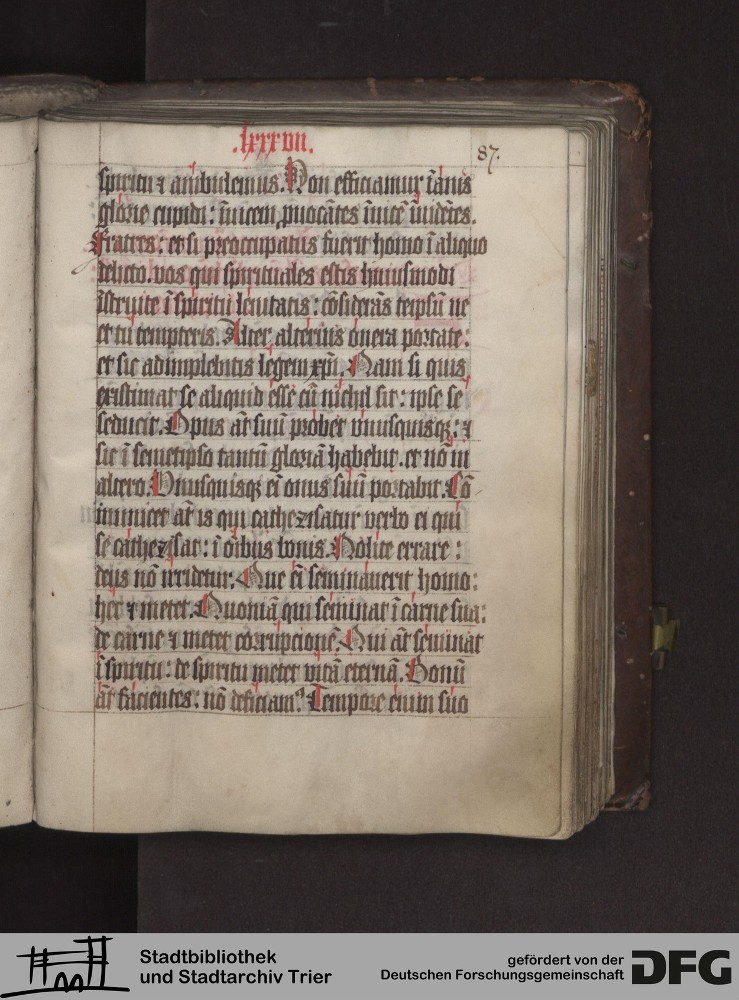 .lxxxvii.
87.
spiritu ⁊ ambulemus. Non efficiamur īanis
glorie cupidi: īuicem ꝓuocātes īuicē īuidētes.
Fratres: et si preoccupatus fuerit homo ī aliquo
delicto. vos qui spirituales estis huiusmodi
īstruite ī spiritu lenitatis: cōsiderās teipsū ne
et tu tempteris. Alter alterius onera portate:
et sic adimplebitis legem xp̄i. Nam si quis
existimat se aliquid esse cū nichil sit: ipse se
seducit. Opus āt suū probet vnusquisqꝫ: ⁊
sic ī semetipso tantū gloriā habebit. et nō in
altero. Vnusquisqꝫ ēī onus suū portabit. Cō
municet āt is qui cathezisatur verbo ei qui
se cathezisat: ī oībus bonis. Nolite errare:
deus nō irridetur. Que ēī seminauerit homo:
hec ⁊ metet. Quoniā qui seminat ī carne sua:
de carne ⁊ metet corrupcionē. Qui āt seminat
ī spiritu: de spiritu metet vitā eternā. Bonū
āt facientes: nō deficiamꝰ. Tempore enim suo
Stadtbibliothek
und Stadtarchiv Trier
gefördert von der
Deutschen Forschungsgemeinschaft
DFG